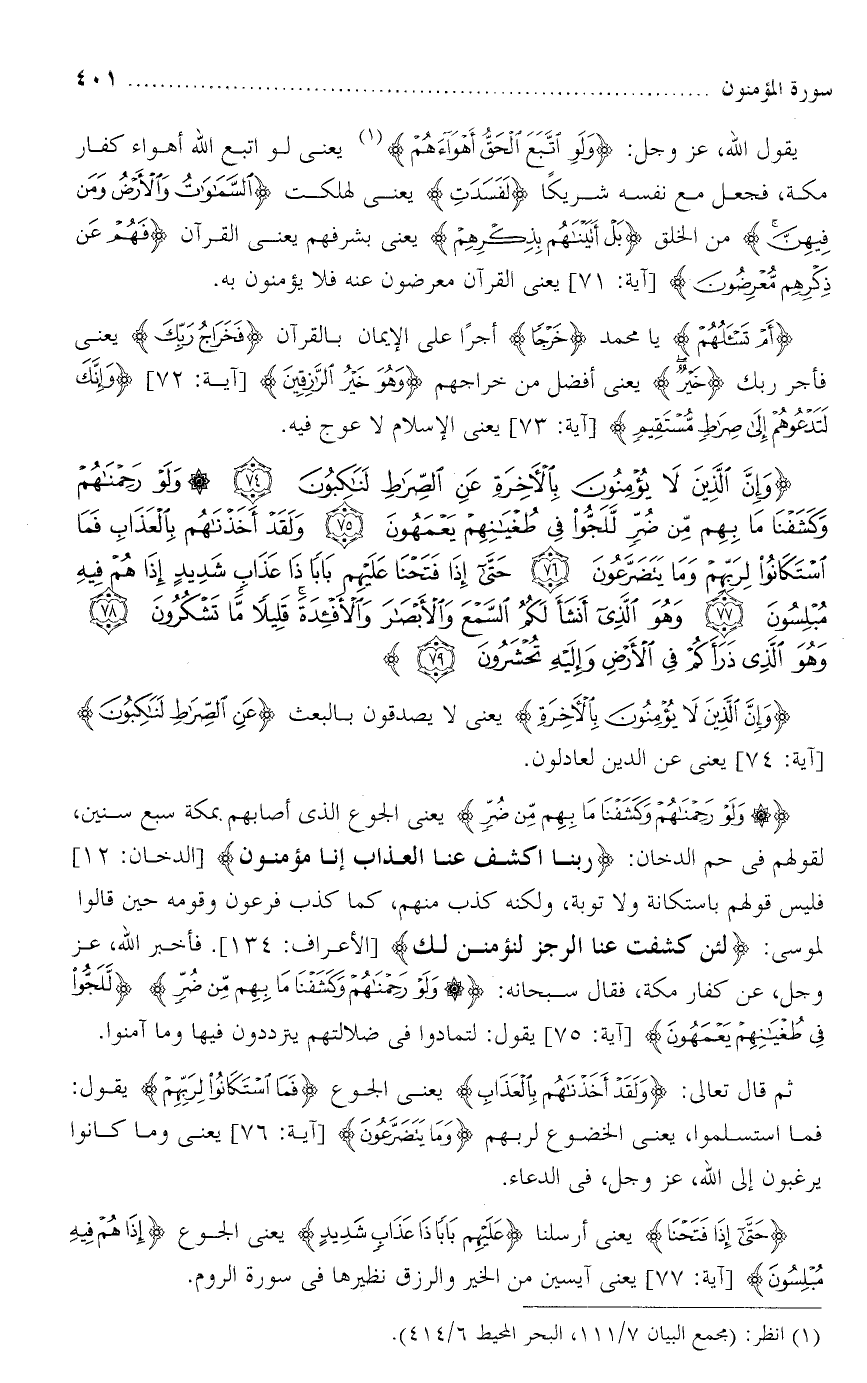 سورة المؤمنون ........................................................................ ٤٠١
يقول الله، عز وجل: ﴿وَلَوِ ٱتَّبَعَ ٱلْحَقُّ أَهْوَآءَهُمْ﴾ (١) يعنى لو اتبع الله أهواء كفار
مكة، فجعل مع نفسه شريكًا ﴿لَفَسَدَتِ﴾ يعنى لهلكت ﴿ٱلسَّمَٰوَٰتُ وَٱلْأَرْضُ وَمَن
فِيهِنَّ﴾ من الخلق ﴿بَلْ أَتَيْنَٰهُم بِذِكْرِهِمْ﴾ يعنى بشرفهم يعنى القرآن ﴿فَهُمْ عَن
ذِكْرِهِم مُّعْرِضُونَ﴾ [آية: ٧١] يعنى القرآن معرضون عنه فلا يؤمنون به.
﴿أَمْ تَسْـَٔلُهُمْ﴾ يا محمد ﴿خَرْجًا﴾ أجرًا على الإيمان بالقرآن ﴿فَخَرَاجُ رَبِّكَ﴾ يعنى
فأجر ربك ﴿خَيْرٌ﴾ يعنى أفضل من خراجهم ﴿وَهُوَ خَيْرُ ٱلرَّٰزِقِينَ﴾ [آية: ٧٢] ﴿وَإِنَّكَ
لَتَدْعُوهُمْ إِلَىٰ صِرَٰطٍ مُّسْتَقِيمٍ﴾ [آية: ٧٣] يعنى الإسلام لا عوج فيه.
﴿وَإِنَّ ٱلَّذِينَ لَا يُؤْمِنُونَ بِٱلْأَخِرَةِ عَنِ ٱلصِّرَٰطِ لَنَٰكِبُونَ ٧٤ ۞ وَلَوْ رَحِمْنَٰهُمْ
وَكَشَفْنَا مَا بِهِم مِّن ضُرٍّ لَّلَجُّوا۟ فِى طُغْيَٰنِهِمْ يَعْمَهُونَ ٧٥ وَلَقَدْ أَخَذْنَٰهُم بِٱلْعَذَابِ فَمَا
ٱسْتَكَانُوا۟ لِرَبِّهِمْ وَمَا يَتَضَرَّعُونَ ٧٦ حَتَّىٰٓ إِذَا فَتَحْنَا عَلَيْهِم بَابًا ذَا عَذَابٍ شَدِيدٍ إِذَا هُمْ فِيهِ
مُبْلِسُونَ ٧٧ وَهُوَ ٱلَّذِىٓ أَنشَأَ لَكُمُ ٱلسَّمْعَ وَٱلْأَبْصَٰرَ وَٱلْأَفْـِٔدَةَ ۚ قَلِيلًا مَّا تَشْكُرُونَ ٧٨
وَهُوَ ٱلَّذِى ذَرَأَكُمْ فِى ٱلْأَرْضِ وَإِلَيْهِ تُحْشَرُونَ ٧٩ ﴾
﴿وَإِنَّ ٱلَّذِينَ لَا يُؤْمِنُونَ بِٱلْأَخِرَةِ﴾ يعنى لا يصدقون بالبعث ﴿عَنِ ٱلصِّرَٰطِ لَنَٰكِبُونَ﴾
[آية: ٧٤] يعنى عن الدين لعادلون.
﴿۞ وَلَوْ رَحِمْنَٰهُمْ وَكَشَفْنَا مَا بِهِم مِّن ضُرٍّ﴾ يعنى الجوع الذى أصابهم بمكة سبع سنين،
لقولهم فى حم الدخان: ﴿ربنا اكشف عنا العذاب إنا مؤمنون﴾ [الدخان: ١٢]
فليس قولهم باستكانة ولا توبة، ولكنه كذب منهم، كما كذب فرعون وقومه حين قالوا
لموسى: ﴿لئن كشفت عنا الرجز لنؤمنن لك﴾ [الأعراف: ١٣٤]. فأخبر الله، عز
وجل، عن كفار مكة، فقال سبحانه: ﴿۞ وَلَوْ رَحِمْنَٰهُمْ وَكَشَفْنَا مَا بِهِم مِّن ضُرٍّ﴾ ﴿لَّلَجُّوا۟
فِى طُغْيَٰنِهِمْ يَعْمَهُونَ﴾ [آية: ٧٥] يقول: لتمادوا فى ضلالتهم يترددون فيها وما آمنوا.
ثم قال تعالى: ﴿وَلَقَدْ أَخَذْنَٰهُم بِٱلْعَذَابِ﴾ يعنى الجوع ﴿فَمَا ٱسْتَكَانُوا۟ لِرَبِّهِمْ﴾ يقول:
فما استسلموا، يعنى الخضوع لربهم ﴿وَمَا يَتَضَرَّعُونَ﴾ [آية: ٧٦] يعنى وما كانوا
يرغبون إلى الله، عز وجل، فى الدعاء.
﴿حَتَّىٰٓ إِذَا فَتَحْنَا﴾ يعنى أرسلنا ﴿عَلَيْهِم بَابًا ذَا عَذَابٍ شَدِيدٍ﴾ يعنى الجوع ﴿إِذَا هُمْ فِيهِ
مُبْلِسُونَ﴾ [آية: ٧٧] يعنى آيسين من الخير والرزق نظيرها فى سورة الروم.
(١) انظر: (مجمع البيان ١١١/٧، البحر المحيط ٤١٤/٦).